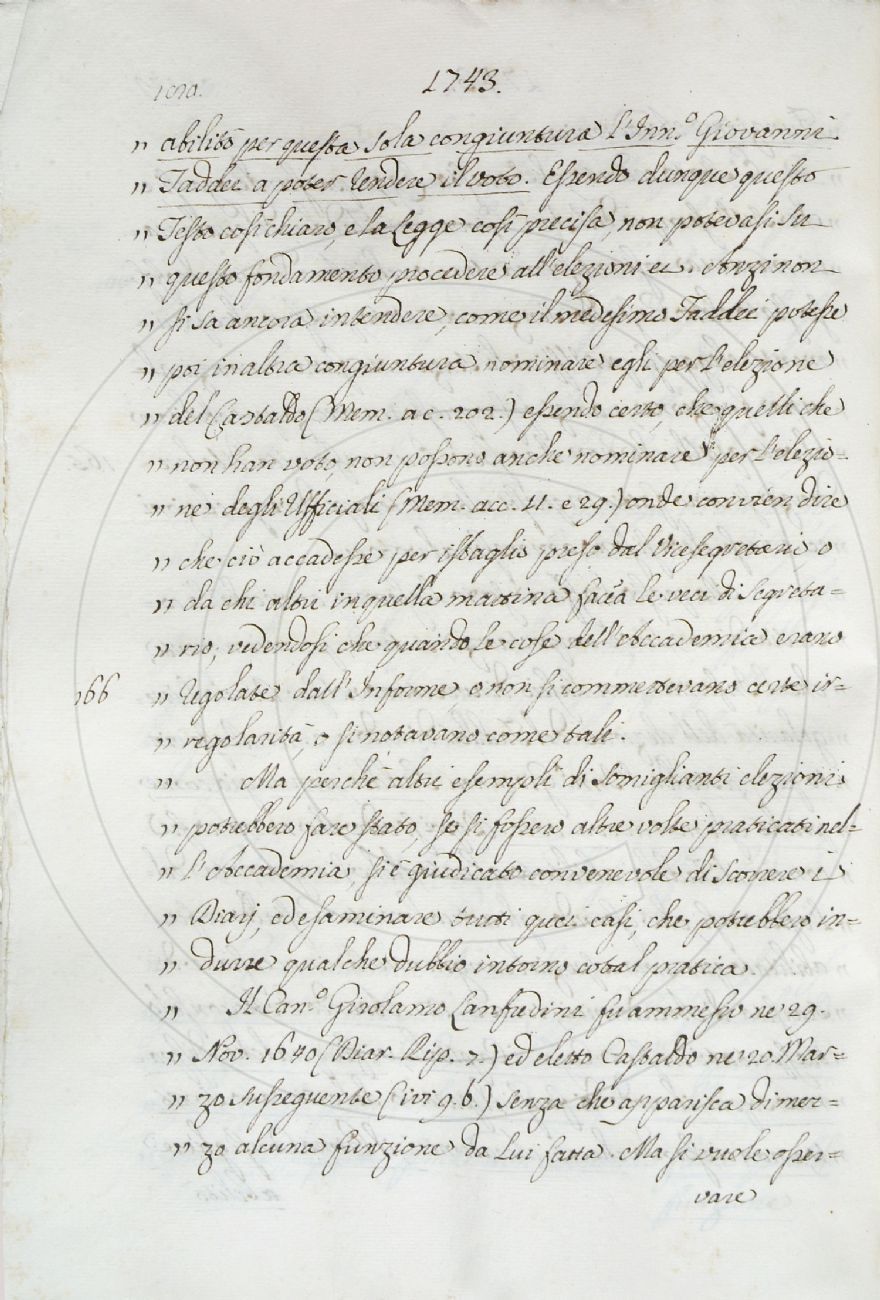 1743.
" abilitò per questa sola congiuntura l'Inn.º Giovanni
" Taddei a poter rendere il voto. Essendo dunque questo
" Testo così chiaro, e la Legge così precisa, non potevasi su
" questo fondamento procedere all'elezioni ec. Anzi non
" si sa ancora intendere, come il medesimo Taddei potesse
" poi in altra congiuntura nominare egli per l'elezione
" del Castaldo (Mem. a c. 202.) essendo certo, che quelli che
" non han voto, non possono anche nominare per l'elezio=
" ne degli Ufficiali (Mem. a cc. 11. e 29.) onde convien dire
" che ciò accadesse per isbaglio preso dal Vicesegretario, o
" da chi altri in quella mattina facea le veci di Segreta=
" rio, vedendosi che quando le cose dell'Accademia erano
166 " regolate dall'Informe, o non si commettevano certe ir=
" regolarità, o si notavano come tali.
" Ma perchè altri esempli di somiglianti elezioni
" potrebbero fare stato, se si fossero altre volte praticati nel=
" l'Accademia, si è giudicato convenevole di scorrere i
" Diarj, ed esaminare tutti quei casi, che potrebbero in=
" durre qualche dubbio intorno cotal pratica.
" Il Can.º Girolamo Lanfredini fu ammesso ne' 29.
" Nov. 1640 (Diar. Rip. 7.) ed eletto Castaldo ne' 20. Mar=
" zo susseguente (ivi 9. b.) senza che apparisca di mez=
" zo alcuna funzione da lui fatta. Ma si vuole osser=
vare